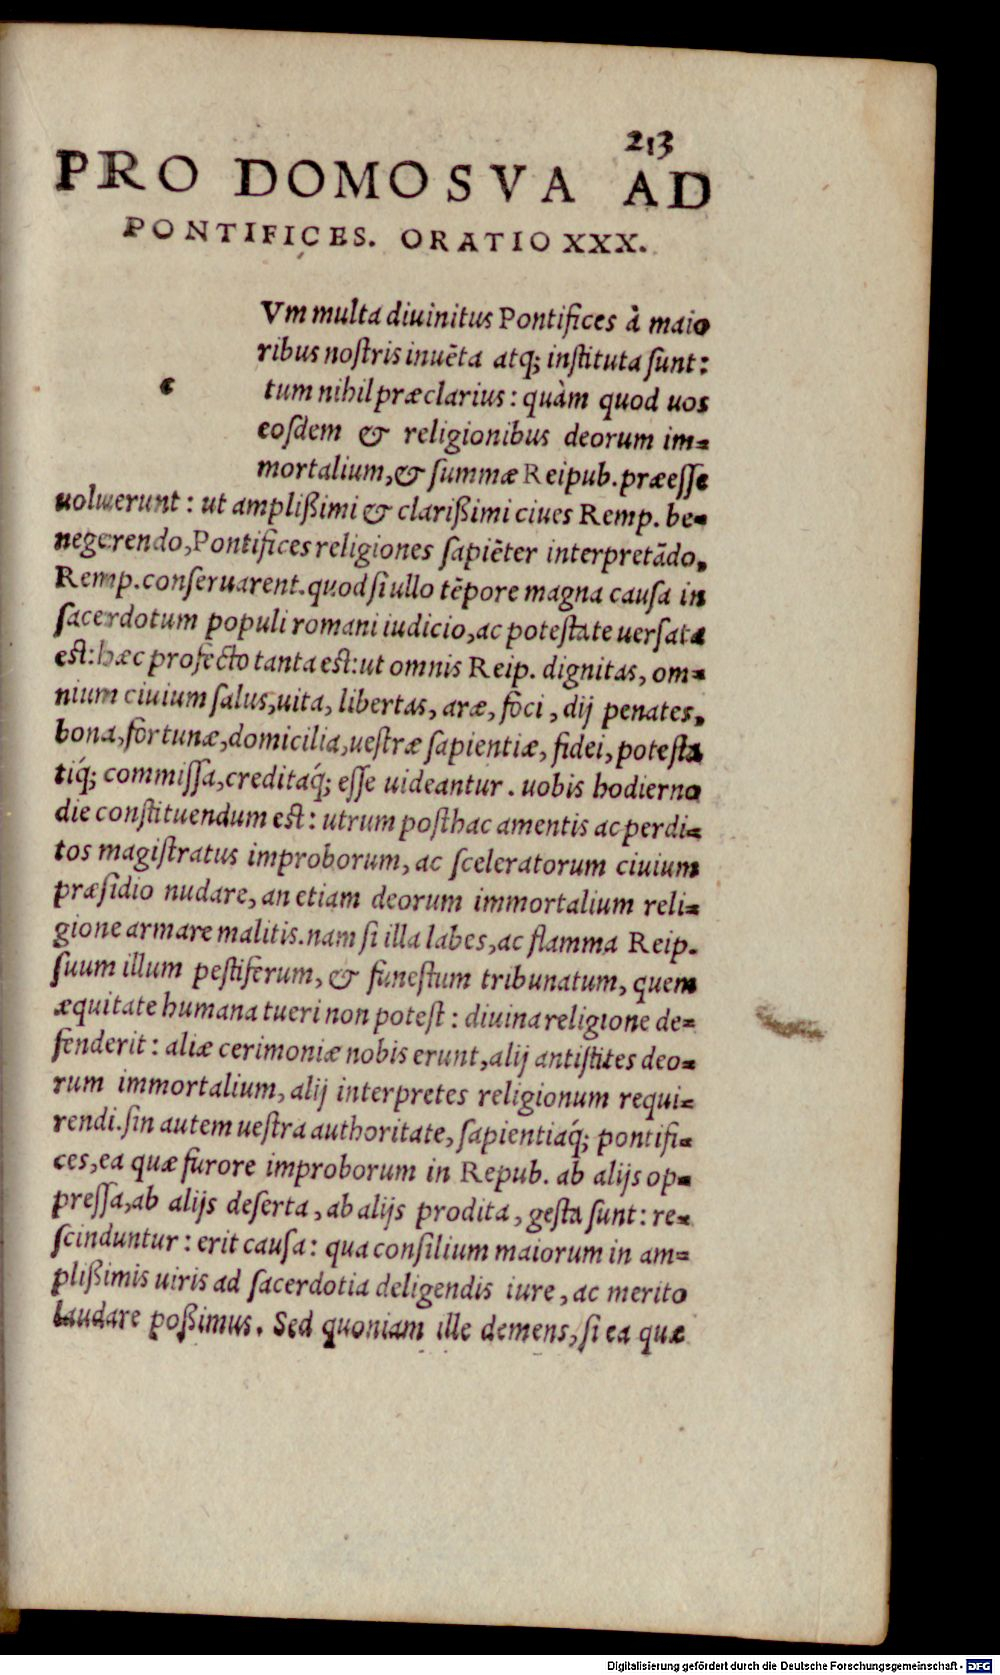 213
PRO DOMO SVA AD
PONTIFICES. ORATIO XXX.
Vm multa diuinitus Pontifices à maio
ribus noſtris inuēta atq; inſtituta ſunt:
c tum nihil præclarius: quàm quod uos
eoſdem & religionibus deorum im-
mortalium, & ſummæ Reipub. præeſſe
uoluerunt: ut amplißimi & clarißimi ciues Remp. be-
negerendo, Pontifices religiones ſapiēter interpretādo,
Remp. conſeruarent. quod ſi ullo tēpore magna cauſa in
ſacerdotum populi romani iudicio, ac poteſtate uerſata
eſt: hæc profecto tanta eſt: ut omnis Reip. dignitas, om-
nium ciuium ſalus, uita, libertas, aræ, foci, dij penates,
bona, fortunæ, domicilia, ueſtræ ſapientiæ, fidei, poteſta
tiq́; commiſſa, creditaq́; eſſe uideantur. uobis hodierno
die conſtituendum eſt: utrum poſthac amentis ac perdi-
tos magiſtratus improborum, ac ſceleratorum ciuium
præſidio nudare, an etiam deorum immortalium reli-
gione armare malitis. nam ſi illa labes, ac flamma Reip.
ſuum illum peſtiferum, & funeſtum tribunatum, quem
æquitate humana tueri non poteſt: diuina religione de-
fenderit: aliæ cerimoniæ nobis erunt, alij antiſtites deo-
rum immortalium, alij interpretes religionum requi-
rendi. ſin autem ueſtra authoritate, ſapientiaq́; pontifi-
ces, ea quæ furore improborum in Repub. ab alijs op-
preſſa, ab alijs deſerta, ab alijs prodita, geſta ſunt: re-
ſcinduntur: erit cauſa: qua conſilium maiorum in am-
plißimis uiris ad ſacerdotia deligendis iure, ac merito
laudare poßimus. Sed quoniam ille demens, ſi ea quæ
Digitalisierung gefördert durch die Deutsche Forschungsgemeinschaft - DFG